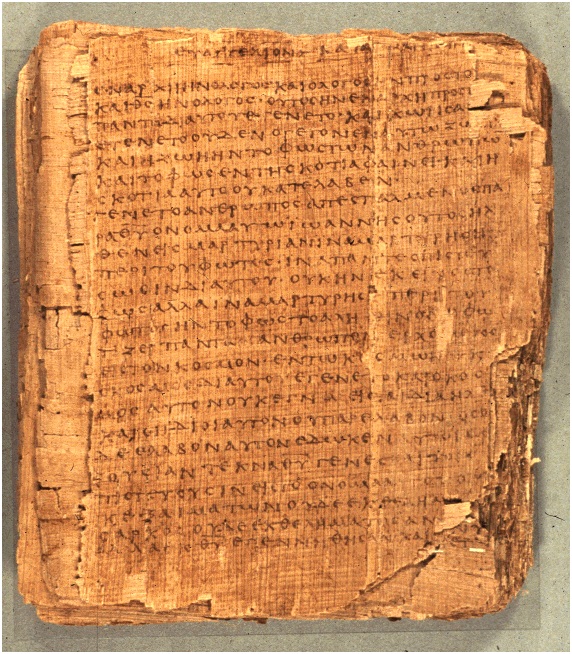 ΕΥΑΓΓΕΛΙΟΝ ΚΑΤΑ
ΕΝΑΡΧΗΗΝΟΛΟΓΟΣΚΑΙΟΛΟΓΟΣΗΝΠΡΟΣΤΟ
ΚΑΙΘΣΗΝΟΛΟΓΟΣ·ΟΥΤΟΣΗΝΕΝΑΡΧΗΠΡΟΣ
ΠΑΝΤΑΔΙΑΥΤΟΥΕΓΕΝΕΤΟΚΑΙΧΩΡΙΣΑ
ΕΓΕΝΕΤΟΟΥΔΕΝΟΓΕΓΟΝΕΝΕΝΑΥΤΩΖΩ
ΚΑΙΗΖΩΗΗΝΤΟΦΩΣΤΩΝΑΝΘΡΩΠΩ
ΚΑΙΤΟΦΩΣΕΝΤΗΣΚΟΤΙΑΦΑΙΝΕΙ·ΚΑΙΗ
ΣΚΟΤΙΑΑΥΤΟΟΥΚΑΤΕΛΑΒΕΝ
ΓΕΝΕΤΟΑΝΘΡΩΠΟΣΑΠΕΣΤΑΛΜΕΝΟΣΠΑ
ΡΑΘΥΟΝΟΜΑΑΥΤΩΙΩΑΝΝΗΣΟΥΤΟΣΗΛ
ΘΕΝΕΙΣΜΑΡΤΥΡΙΑΝΙΝΑΜΑΡΤΥΡΗΣΗ
ΠΕΡΙΤΟΥΦΩΤΟΣ·ΙΝΑΠΑΝΤΕΣΠΙΣΤΕΥ
ΣΩΣΙΝΔΙΑΥΤΟΥ·ΟΥΚΗΝΕΚΕΙΝΟΣΤΟ
ΦΩΣΑΛΛΑΙΝΑΜΑΡΤΥΡΗΣΗΠΕΡΙΤΟΥ
ΦΩΤΟΣ·ΗΝΤΟΦΩΣΤΟΑΛΗΘΙΝΟΝΟΦΩ
ΤΙΖΕΙΠΑΝΤΑΑΝΘΡΩΠΟΝΕΡΧΟΜΕΝΟΝ
ΕΙΣΤΟΝΚΟΣΜΟΝ·ΕΝΤΩΚΟΣΜΩΗΝΚΑΙΟ
ΚΟΣΜΟΣΔΙΑΥΤΟΥΕΓΕΝΕΤΟΚΑΙΟΚΟΣ
ΜΟΣΑΥΤΟΝΟΥΚΕΓΝΩ·ΕΙΣΤΑΙΔΙΑΗΛΘΕ
ΚΑΙΟΙΙΔΙΟΙΑΥΤΟΝΟΥΠΑΡΕΛΑΒΟΝΟΣΟΙ
ΔΕΕΛΑΒΟΝΑΥΤΟΝΕΔΩΚΕΝΑΥΤΟΙΣΕ
ΞΟΥΣΙΑΝΤΕΚΝΑΘΥΓΕΝΕΣΘΑΙΤΟΙΣ
ΠΙΣΤΕΥΟΥΣΙΝΕΙΣΤΟΟΝΟΜΑΑΥΤΟΥΟΙΟΥ
ΚΕΞΑΙΜΑΤΩΝΟΥΔΕΕΚΘΕΛΗΜΑ
ΣΑΡΚΟΣΟΥΔΕΕΚΘΕΛΗΜΑΤΟΣΑΝ
ΑΛΛΑΕΚΘΥΕΓΕΝΝΗΘΗΣΑΝΚΑΙΟ